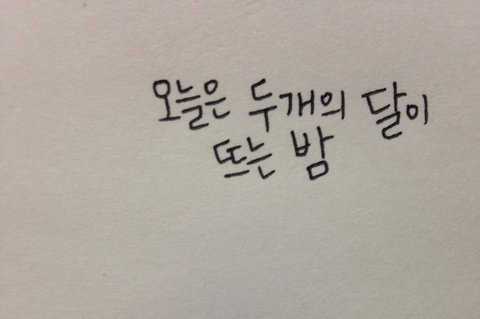 오늘은 두개의 달이
뜨는 밤